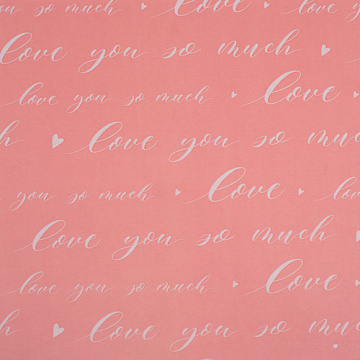 love you so much
love you so much love
h love you so much
you so much love love
love you so much
love you so much love
h love you so much